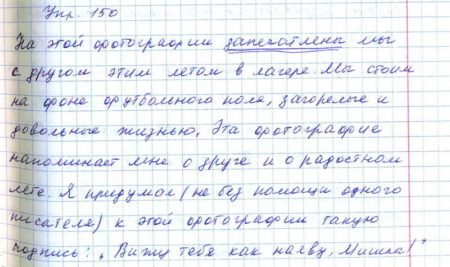 Упр. 150
На этой фотографии запечатлены мы
с другом этим летом в лагере. Мы стоим
на фоне футбольного поля, загорелые и
довольные жизнью. Эта фотография
напоминает мне о друге и о радостном
лете. Я придумал (не без помощи одного
писателя) к этой фотографии такую
подпись: „Вижу тебя как наяву, Мишка!"